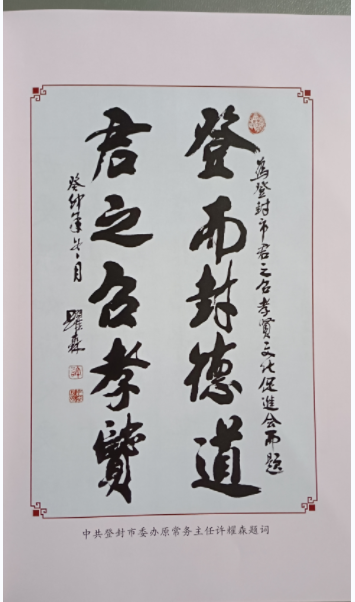 为登封市君之召孝贤文化促进会而题
登而封德道
君之召孝贤
癸卯年七月
耀森
中共登封市委办原常务主任许耀森题词